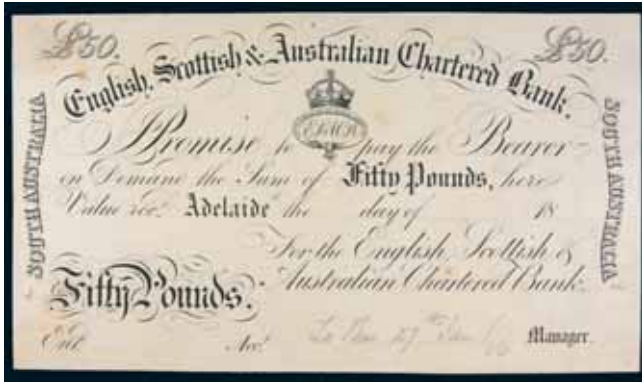 £50. £50.
English, Scottish & Australian Chartered Bank.
SOUTH AUSTRALIA
I Promise to pay the Bearer
on Demand the Sum of Fifty Pounds, here
Value recd. Adelaide the day of 18
SOUTH AUSTRALIA
For the English, Scottish &
Australian Chartered Bank.
Fifty Pounds.
Entd. Acct. 27th Manager.